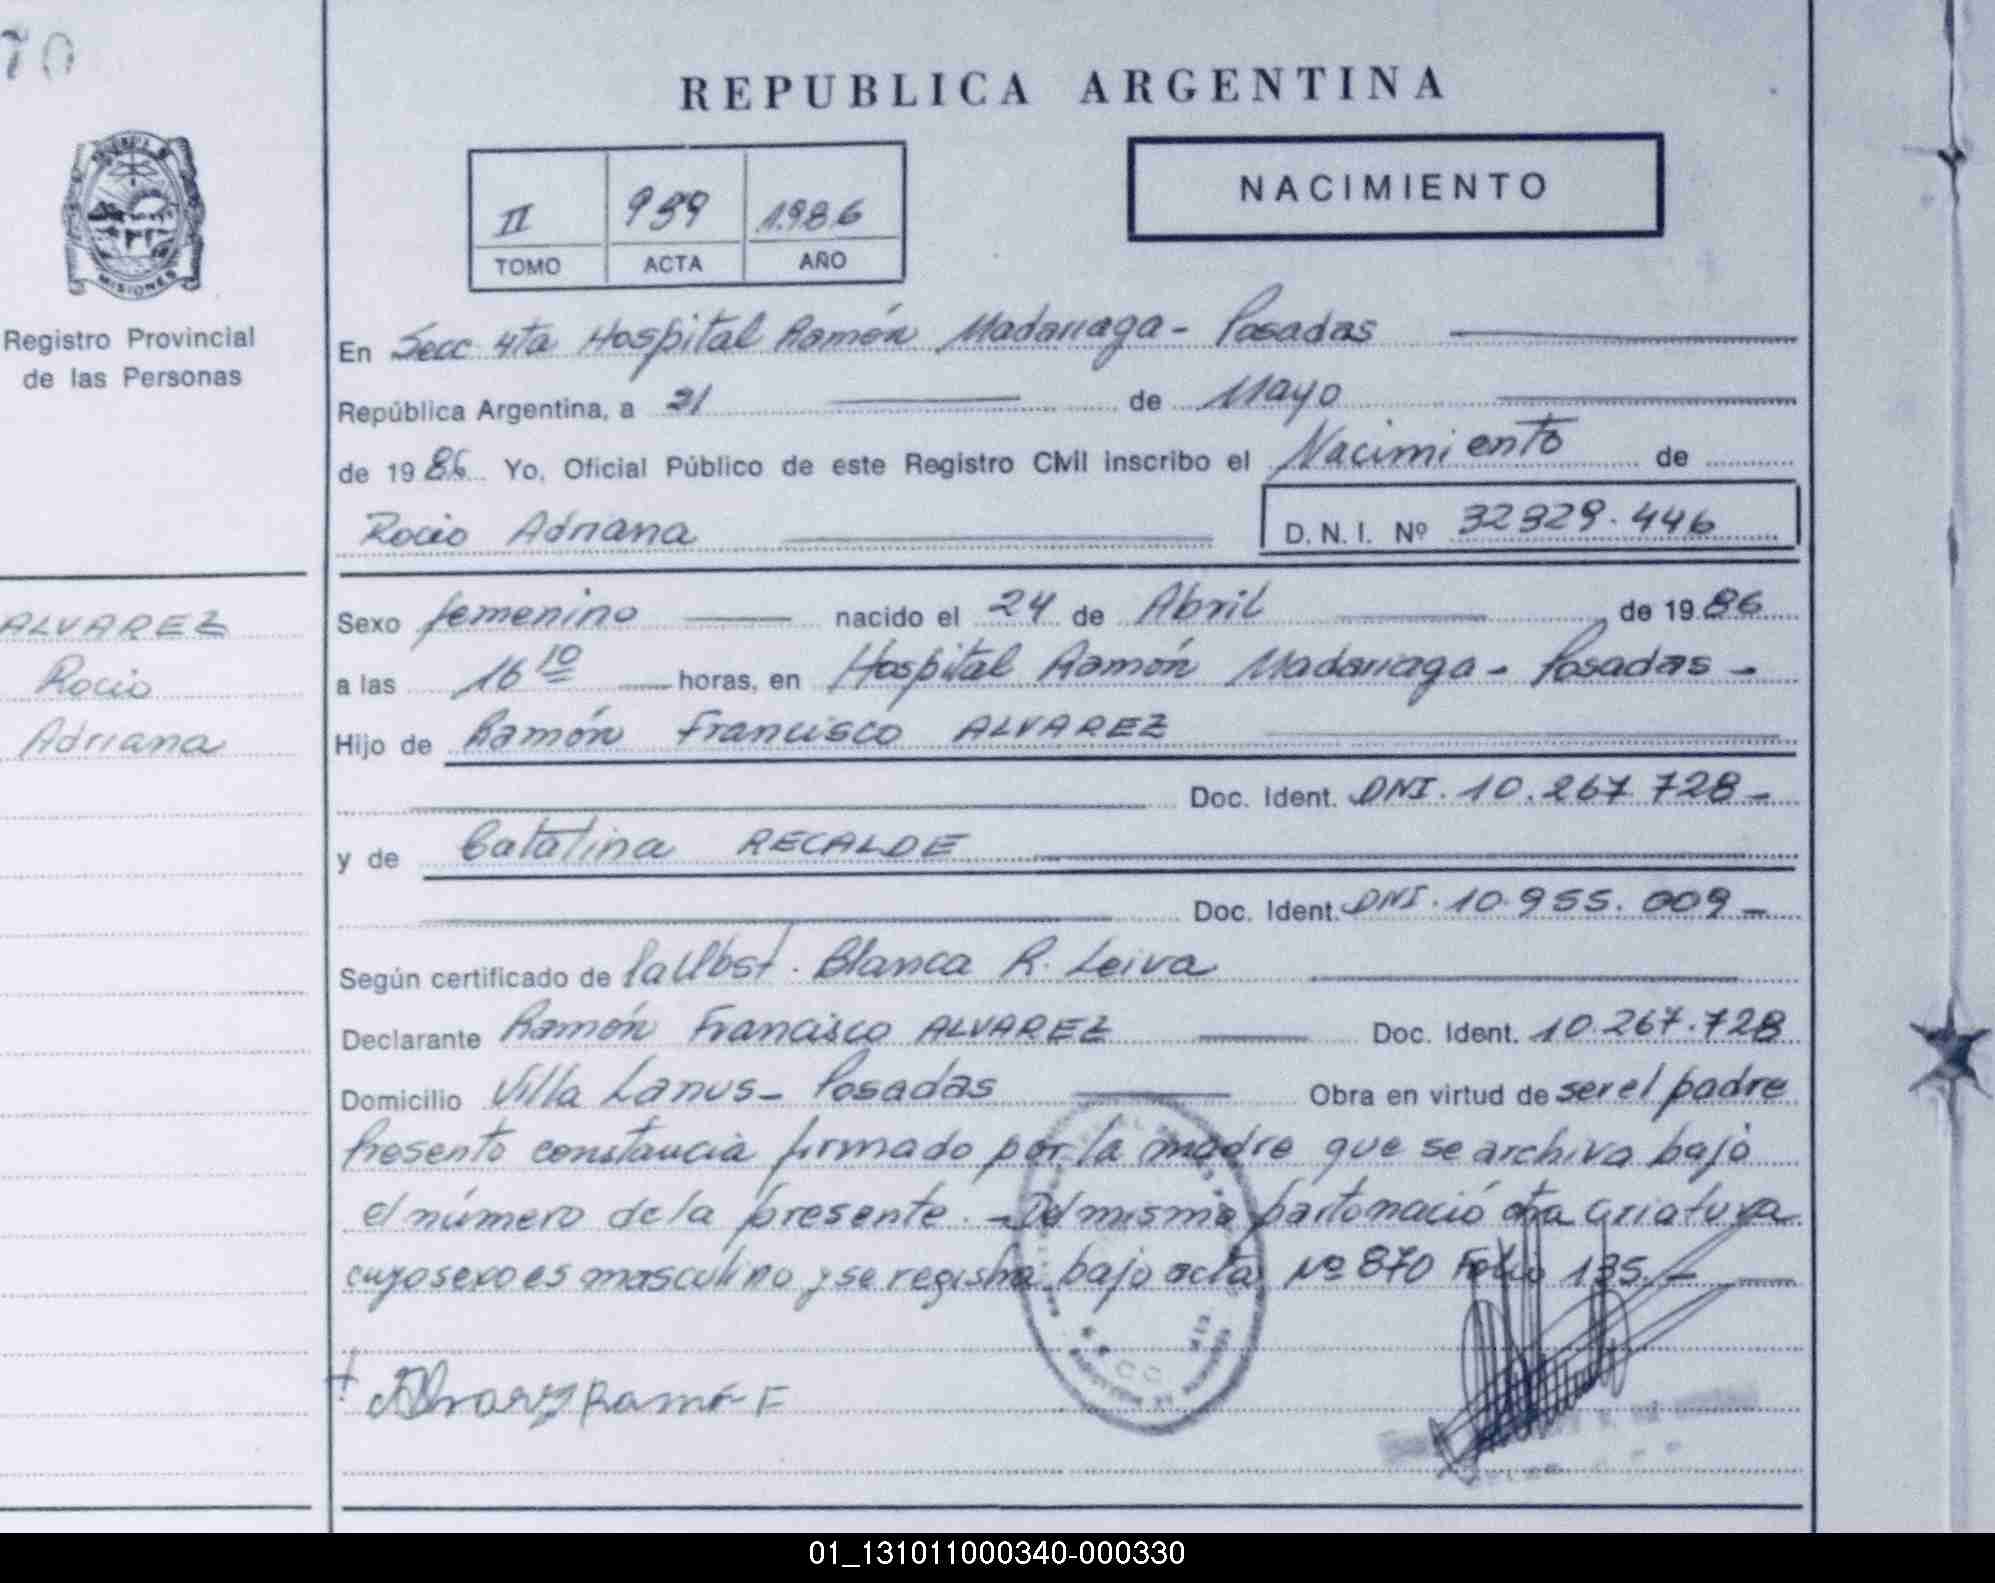 70
REPUBLICA ARGENTINA
NACIMIENTO
II 959 1986
TOMO ACTA AÑO
MISIONES
Registro Provincial
de las Personas
En Secc 4ta Hospital Ramón Madariaga - Posadas
República Argentina, a 21 de Mayo
de 1986 Yo, Oficial Público de este Registro Civil inscribo el Nacimiento de
Rocio Adriana D.N.I. Nº 32329.446
ALVAREZ
Rocio
Adriana
Sexo femenino nacido el 24 de Abril de 1986
a las 16 10 horas, en Hospital Ramón Madariaga - Posadas -
Hijo de Ramón Francisco ALVAREZ
Doc. Ident. DNI. 10.267.728 -
y de Catalina RECALDE
Doc. Ident. DNI. 10.955.009 -
Según certificado de Blanca R. Leiva
Declarante Ramón Francisco ALVAREZ Doc. Ident. 10.267.728
Domicilio Villa Lanus - Posadas Obra en virtud de ser el padre
Presento constancia firmado por la madre que se archiva bajo
el número de la presente. - Del mismo parto nació otra criatura
cuyo sexo es masculino y se registra bajo acta Nº 870 Folio 135. -
Alvarez Ramón F
01_131011000340-000330